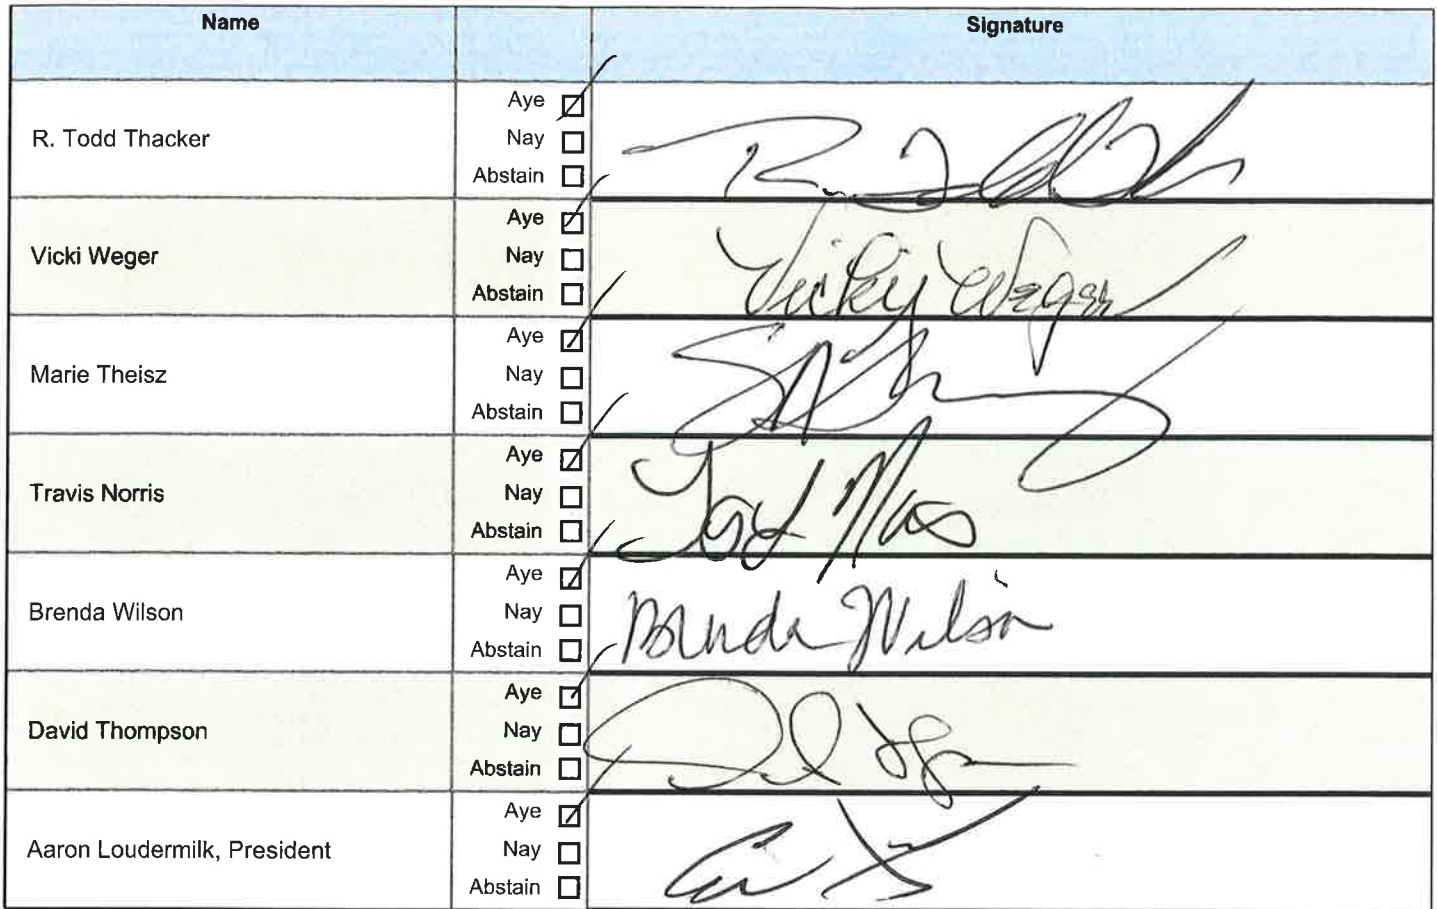 Name Signature
R. Todd Thacker
Aye
Nay
Abstain
Vicki Weger
Aye
Nay
Abstain
Vicky Weger
Marie Theisz
Aye
Nay
Abstain
Travis Norris
Aye
Nay
Abstain
Brenda Wilson
Aye
Nay
Abstain
Brenda Wilson
David Thompson
Aye
Nay
Abstain
Aaron Loudermilk, President
Aye
Nay
Abstain